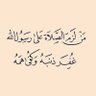 مَن لَزِمَ الصَّلَاةَ عَلَى رَسُولِ الله
غُفِرَ ذَنبُهُ وَكُفِيَ هَمَّهُ